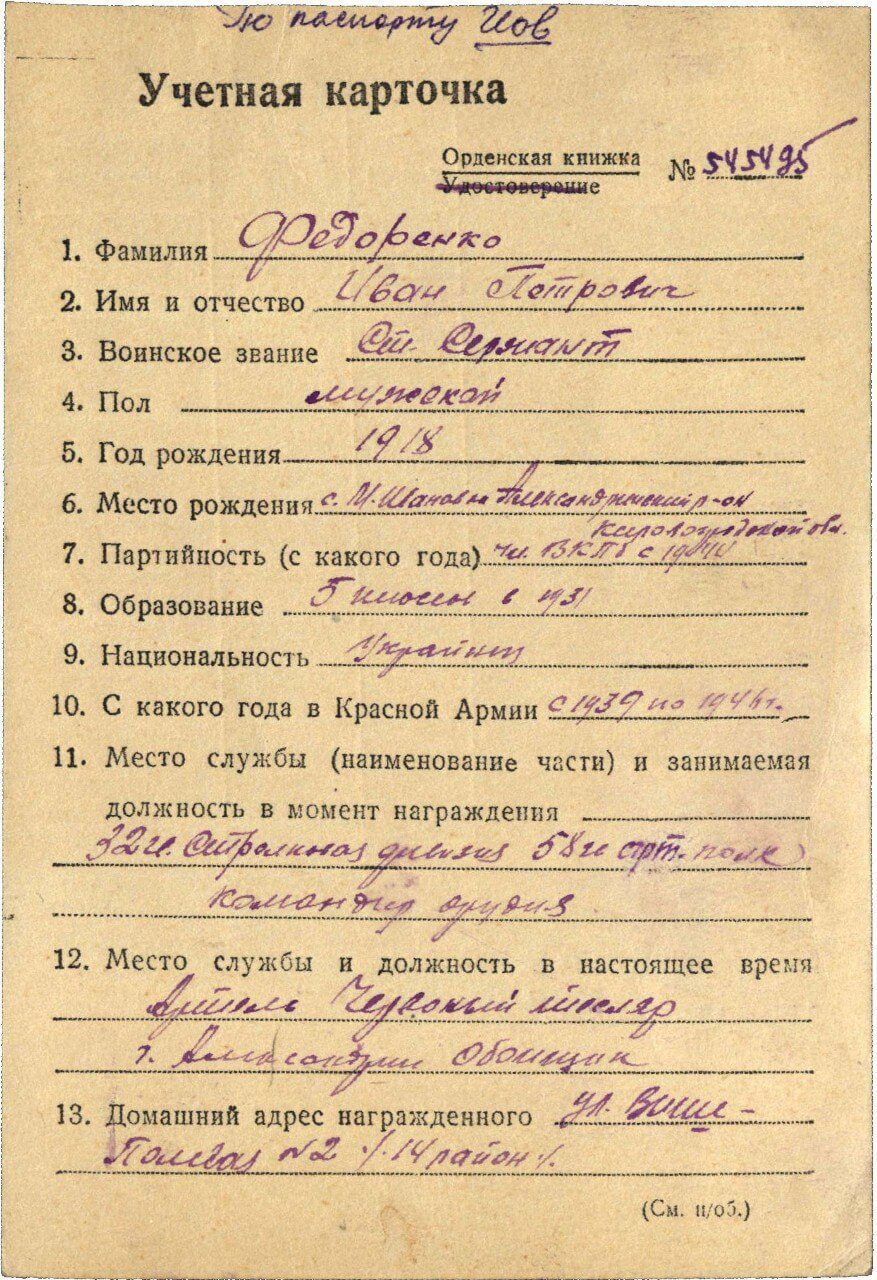 По паспорту Иов
Учетная карточка
Орденская книжка
Удостоверение
№ 545495
1. Фамилия Федоренко
2. Имя и отчество Иван Петрович
3. Воинское звание Ст. Сержант
4. Пол мужской
5. Год рождения 1918
6. Место рождения с. М. Шановка Александрийский р-он
Кировоградской обл.
7. Партийность (с какого года) чл. ВКПб с 1944
8. Образование 5 классов в 1931
9. Национальность Украинец
10. С какого года в Красной Армии с 1939 по 1946 г.
11. Место службы (наименование части) и занимаемая
должность в момент награждения
32 гв. Стрелковая дивизия 58 гв арт. полк
командир орудия
12. Место службы и должность в настоящее время
Артель Червоный тесляр
г. Александрии Обойщик
13. Домашний адрес награжденного ул.
Полевая №2 /. 14 район /.
(См. н/об.)